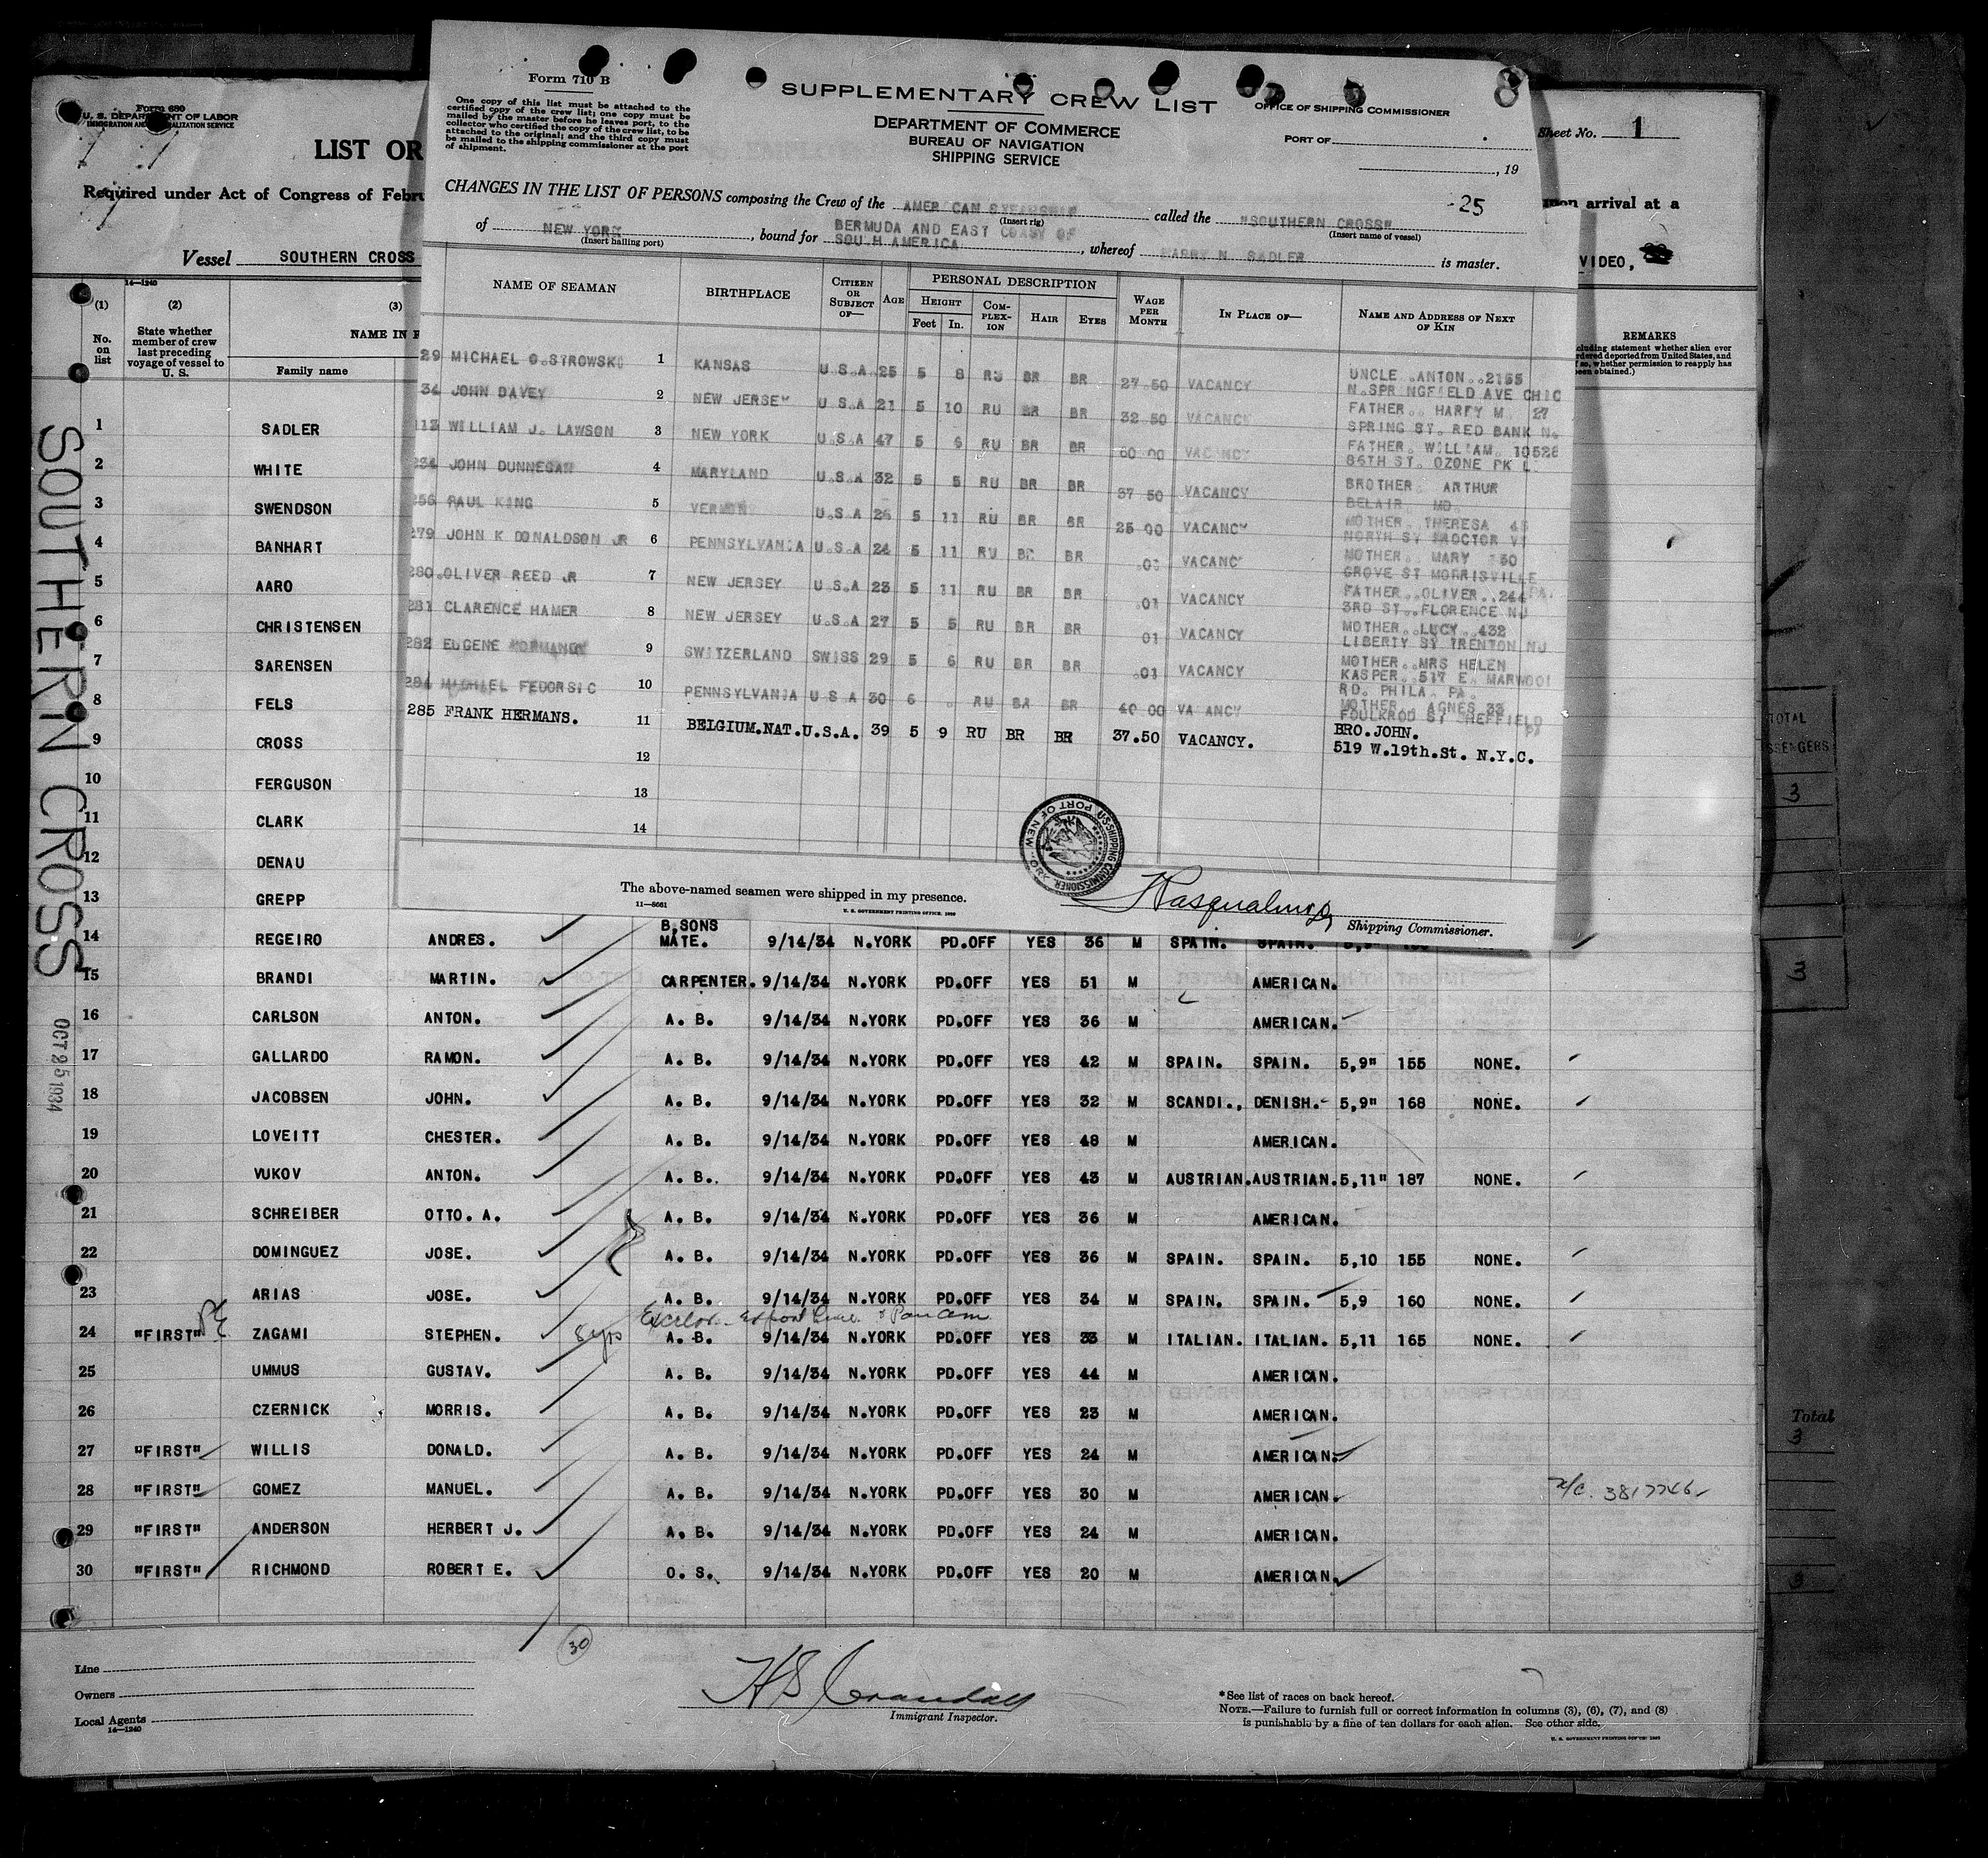 Form 680
U. S. DEPARTMENT OF LABOR
IMMIGRATION AND NATURALIZATION SERVICE
LIST OR
Required under Act of Congress of Febru
Vessel SOUTHERN CROSS
Sheet No. 1
upon arrival at a
VIDEO,
Form 710 B
One copy of this list must be attached to the
certified copy of the crew list; one copy must be
mailed by the master before he leaves port, to the
collector who certified the copy of the crew list, to be
attached to the original; and the third copy must
be mailed to the shipping commissioner at the port
of shipment.
SUPPLEMENTARY CREW LIST
DEPARTMENT OF COMMERCE
BUREAU OF NAVIGATION
SHIPPING SERVICE
OFFICE OF SHIPPING COMMISSIONER
PORT OF
, 19
8
-25
CHANGES IN THE LIST OF PERSONS composing the Crew of the AMERICAN STEAMSHIP called the "SOUTHERN CROSS"
(Insert rig) (Insert name of vessel)
of NEW YORK, bound for BERMUDA AND EAST COAST OF SOUTH AMERICA, whereof HARRY N. SADLER is master.
(Insert hailing port)
NAME OF SEAMAN BIRTHPLACE CITIZEN OR SUBJECT OF— AGE PERSONAL DESCRIPTION WAGE PER MONTH IN PLACE OF— NAME AND ADDRESS OF NEXT OF KIN
HEIGHT COMPLEXION HAIR EYES
Feet In.
29 MICHAEL OSTROWSKI 1 KANSAS U.S.A 25 5 8 RU BR BR 27.50 VACANCY UNCLE ANTON 2155
N.SPRINGFIELD AVE CHIC
34 JOHN DAVEY 2 NEW JERSEY U S A 21 5 10 RU BR BR 32 50 VACANCY FATHER.. HARRY M. 27
SPRING ST. RED BANK NJ
113 WILLIAM J. LAWSON 3 NEW YORK U.S.A 47 5 6 RU BR BR 60 00 VACANCY FATHER. WILLIAM. 10528
86TH ST. OZONE PK L.
234 JOHN DUNNEGAN 4 MARYLAND U.S.A 32 5 5 RU BR BR 37 50 VACANCY BROTHER ARTHUR
BELAIR MD
256 PAUL KING 5 VERMONT U.S.A 26 5 11 RU BR BR 25 00 VACANCY MOTHER. THERESA 45
NORTH ST PROCTOR VT
279 JOHN K DONALDSON JR 6 PENNSYLVANIA U.S.A 24 5 11 RU BR BR .01 VACANCY MOTHER. MARY 130
GROVE ST MORRISVILLE PA.
280.OLIVER REED JR 7 NEW JERSEY U.S.A 23 5 11 RU BR BR .01 VACANCY FATHER..OLIVER..244
3RD ST..FLORENCE NJ
281 CLARENCE HAMER 8 NEW JERSEY U.S.A 27 5 5 RU BR BR 01 VACANCY MOTHER..LUCY..432
LIBERTY ST TRENTON NJ
282 EUGENE 9 SWITZERLAND SWISS 29 5 6 RU BR BR .01 VACANCY MOTHER..MRS HELEN
KASPER..517 E. MARWOOD
RD. PHILA. PA.
284 MICHAEL FEDORSIC 10 PENNSYLVANIA U S A 30 6 RU BR BR 40 00 VACANCY MOTHER.. AGNES 33
FOULKROD ST SHEFFIELD
285 FRANK HERMANS. 11 BELGIUM.NAT.U.S.A. 39 5 9 RU BR BR 37.50 VACANCY. BRO.JOHN.
519 W.19th.St. N.Y.C.
12
13
14
U.S. SHIPPING COMMISSIONER PORT OF NEW YORK
The above-named seamen were shipped in my presence.
11—8661 U. S. GOVERNMENT PRINTING OFFICE
Shipping Commissioner.
14—1240
(1) (2) (3)
No. on list
State whether member of crew last preceding voyage of vessel to U. S.
NAME IN F
Family name
REMARKS
SOUTHERN CROSS
OCT 25 1934
1 SADLER
2 WHITE
3 SWENDSON
4 BANHART
5 AARO
6 CHRISTENSEN
7 SARENSEN
8 FELS
9 CROSS
10 FERGUSON
11 CLARK
12 DENAU
13 GREPP
14 REGEIRO ANDRES. B,SONS MATE. 9/14/34 N.YORK PD.OFF YES 36 M SPAIN. SPAIN.
15 BRANDI MARTIN. CARPENTER. 9/14/34 N.YORK PD.OFF YES 51 M AMERICAN.
16 CARLSON ANTON. A. B. 9/14/34 N.YORK PD.OFF YES 36 M AMERICAN.
17 GALLARDO RAMON. A. B. 9/14/34 N.YORK PD.OFF YES 42 M SPAIN. SPAIN. 5,9" 155 NONE.
18 JACOBSEN JOHN. A. B. 9/14/34 N.YORK PD.OFF YES 32 M SCANDI., DENISH. 5,9" 168 NONE.
19 LOVEITT CHESTER. A. B. 9/14/34 N.YORK PD.OFF YES 48 M AMERICAN.
20 VUKOV ANTON. A. B. 9/14/34 N.YORK PD.OFF YES 43 M AUSTRIAN. AUSTRIAN. 5,11" 187 NONE.
21 SCHREIBER OTTO. A. A. B. 9/14/34 N.YORK PD.OFF YES 36 M AMERICAN.
22 DOMINGUEZ JOSE. A. B. 9/14/34 N.YORK PD.OFF YES 36 M SPAIN. SPAIN. 5,10 155 NONE.
23 ARIAS JOSE. A. B. 9/14/34 N.YORK PD.OFF YES 34 M SPAIN. SPAIN. 5,9 160 NONE.
24 "FIRST" ZAGAMI STEPHEN. 8yrs A. B. 9/14/34 N.YORK PD.OFF YES 33 M ITALIAN. ITALIAN. 5,11 165 NONE.
25 UMMUS GUSTAV. A. B. 9/14/34 N.YORK PD.OFF YES 44 M AMERICAN.
26 CZERNICK MORRIS. A. B. 9/14/34 N.YORK PD.OFF YES 23 M AMERICAN.
27 "FIRST" WILLIS DONALD. A. B. 9/14/34 N.YORK PD.OFF YES 24 M AMERICAN.
28 "FIRST" GOMEZ MANUEL. A. B. 9/14/34 N.YORK PD.OFF YES 30 M AMERICAN.
29 "FIRST" ANDERSON HERBERT J. A. B. 9/14/34 N.YORK PD.OFF YES 24 M AMERICAN.
30 "FIRST" RICHMOND ROBERT E. O. S. 9/14/34 N.YORK PD.OFF YES 20 M AMERICAN.
30
Line
Owners
Local Agents
14—1240
Immigrant Inspector.
*See list of races on back hereof.
NOTE.—Failure to furnish full or correct information in columns (3), (6), (7), and (8)
is punishable by a fine of ten dollars for each alien. See other side.
TOTAL
3
3
Total
3
3